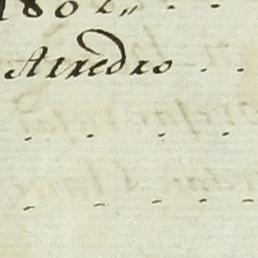 1802,, - -
Atredro - -
- - - -
- - - -